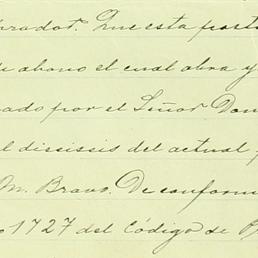 brador. Que esta parte
abono el cual obra y
ado por el Señor Don
el diesisis del actual
M. Bravo. De conformi
1727 del Código de P